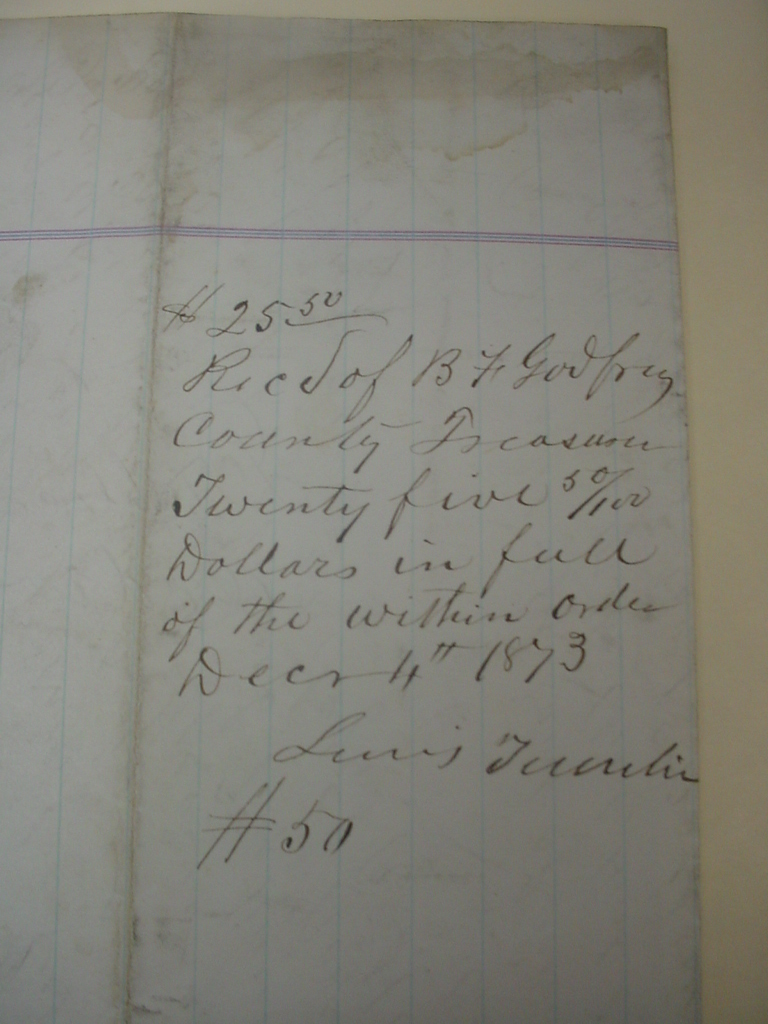 $ 25 50
Recd of B F Godfrey
County Treasurer
Twenty five 50/100
Dollars in full
of the within order
Decr 4th 1873
Lewis
# 50